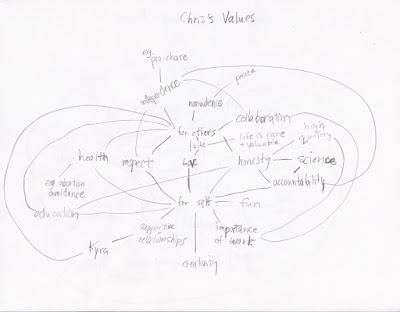 Chris's Values
eg.
pro-choice
peace
independence
nonviolence
collaboration
for others
life
life is rare
+ valuable
high
quality
health
respect
Love
honesty
science
eg abortion
avoidance
accountability
education
for self
fun
supportive
relationships
importance
of work
Kyra
creativity